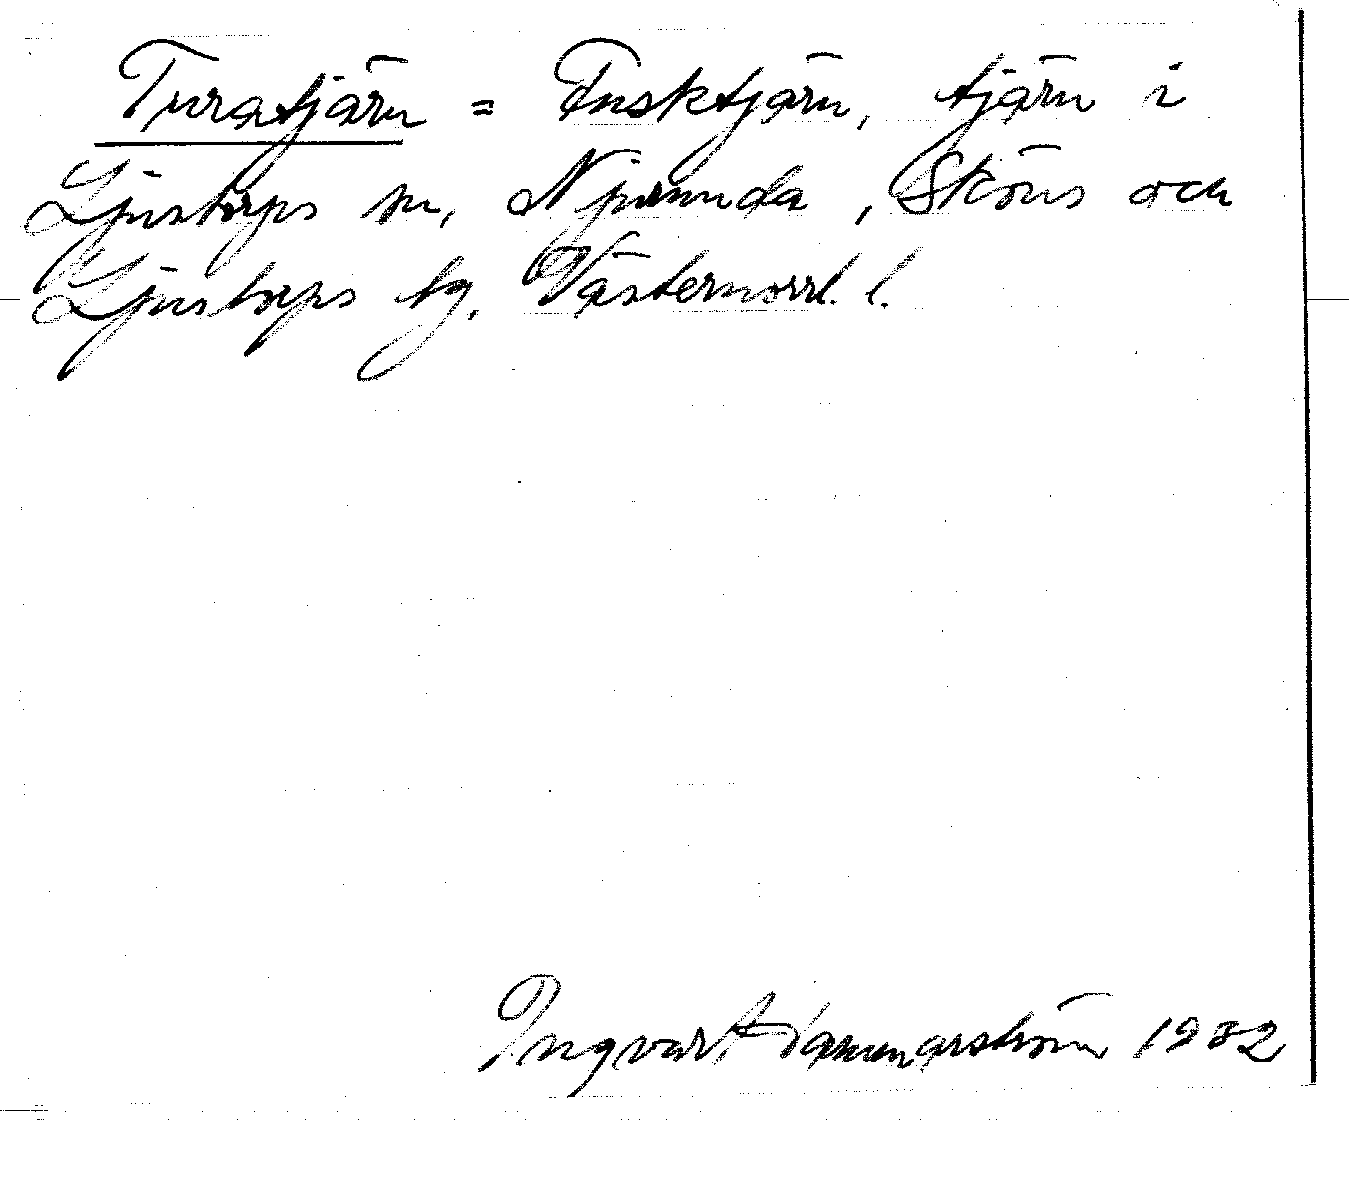 Turatjärn = Tusktjärn, tjärn i
Ljustorps sn, Njurunda, Sköns och
Ljustorps tg. Västernorrl. l.
Ingvar Hammarström 1932